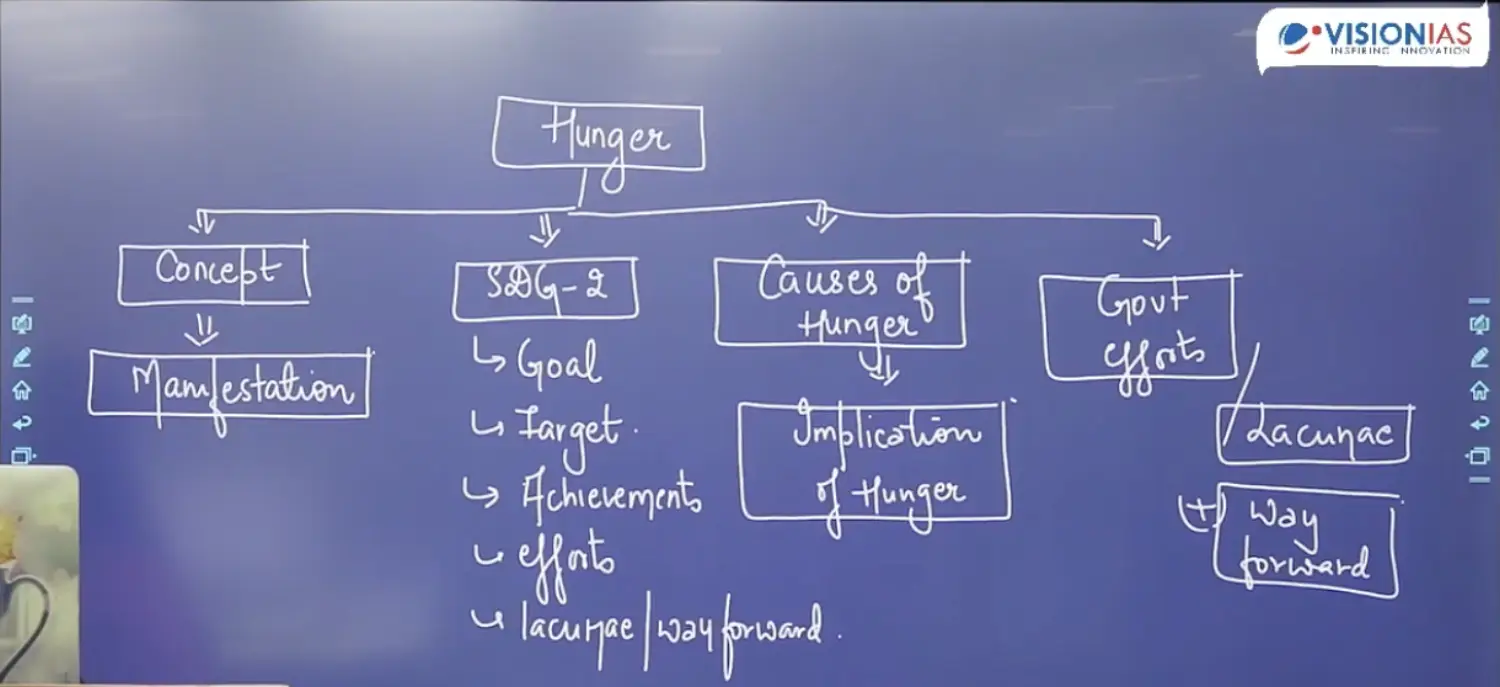 VISIONIAS
INSPIRING INNOVATION
Hunger
Concept
Manifestation
SDG-2
↳ Goal
↳ Target.
↳ Achievements
↳ efforts
↳ lacunae/way forward.
Causes of
Hunger
Implication
of Hunger
Govt
efforts
Lacunae
(+) way
forward